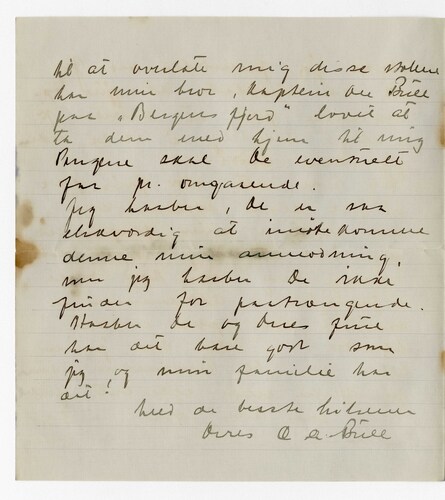 til at overlate mig disse stolene
har min bror, Kaptein Ole Bull
paa "Bergensfjord" lovet at
ta dem med hjem til mig
Pengene skal De eventuelt
faa pr. omgaaende.
Jeg haaber, De er saa
elskværdig at imøtekomme
denne min anmodning,
men jeg haaber De ikke
finder for paatrængende.
Haaber De og Deres frue
har det bare godt som
jeg, og min familie har
det.
Med de beste hilsener
Deres O A Bull